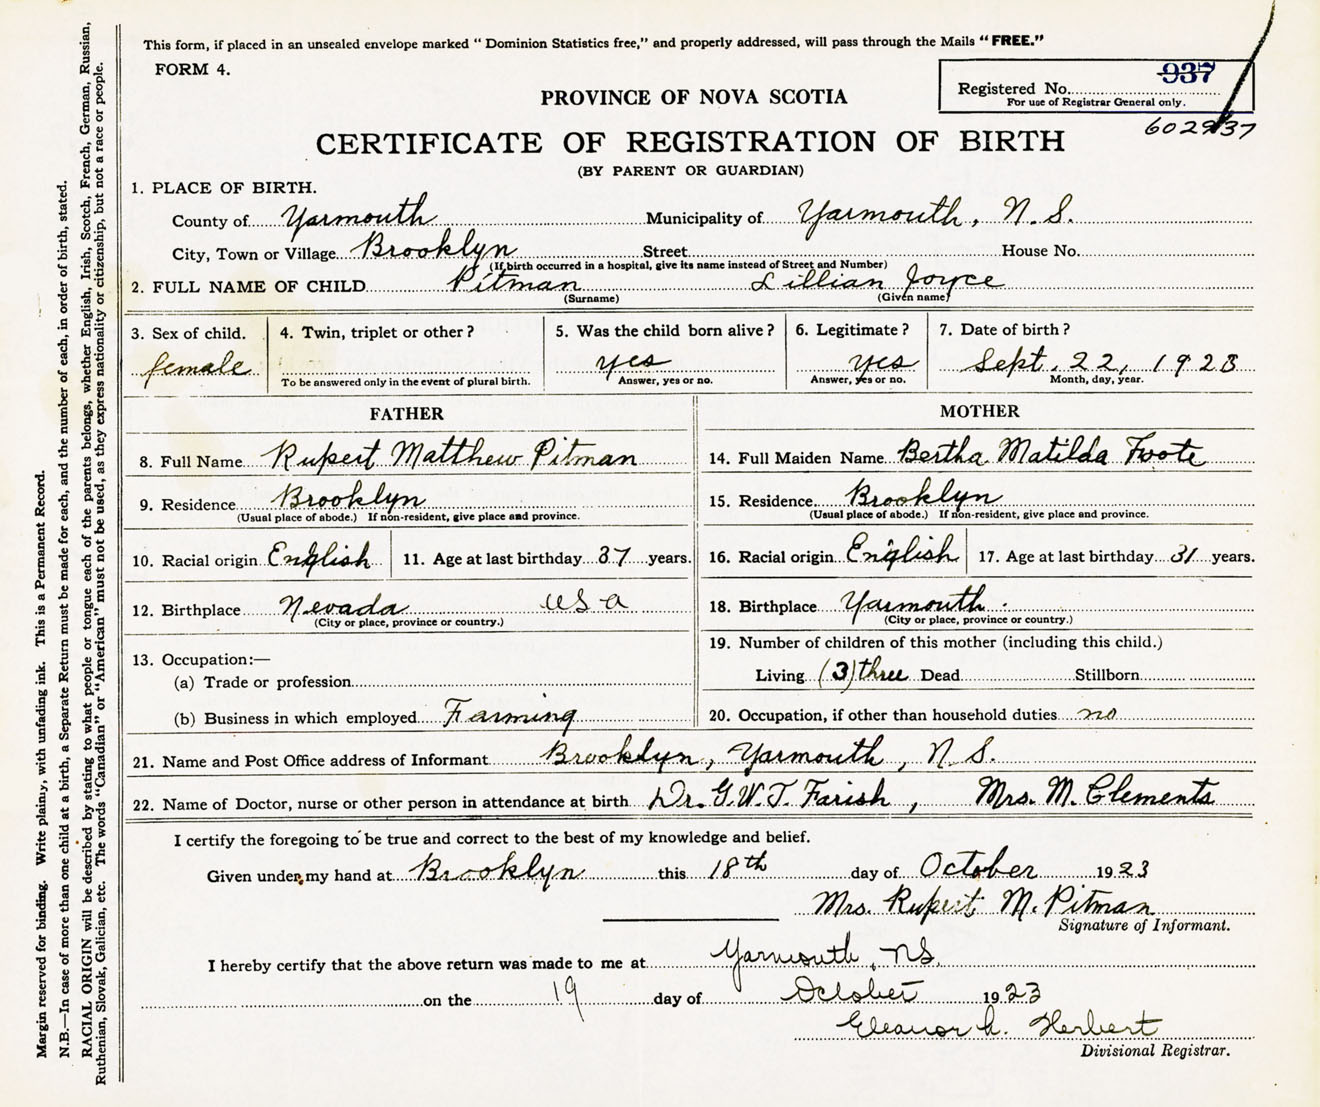 This form, if placed in an unsealed envelope marked "Dominion Statistics free," and properly addressed, will pass through the Mails "FREE."
FORM 4.
Registered No. 937
For use of Registrar General only.
602937
PROVINCE OF NOVA SCOTIA
CERTIFICATE OF REGISTRATION OF BIRTH
(BY PARENT OR GUARDIAN)
1. PLACE OF BIRTH.
County of Yarmouth Municipality of Yarmouth, N.S.
City, Town or Village Brooklyn Street House No.
(If birth occurred in a hospital, give its name instead of Street and Number)
2. FULL NAME OF CHILD Pitman Lillian Joyce
(Surname) (Given name)
3. Sex of child. 4. Twin, triplet or other? 5. Was the child born alive? 6. Legitimate? 7. Date of birth?
female yes yes Sept. 22, 1923
To be answered only in the event of plural birth. Answer, yes or no. Answer, yes or no. Month, day, year.
FATHER MOTHER
8. Full Name Rupert Matthew Pitman 14. Full Maiden Name Bertha Matilda Foote
9. Residence Brooklyn 15. Residence Brooklyn
(Usual place of abode.) If non-resident, give place and province. (Usual place of abode.) If non-resident, give place and province.
10. Racial origin English 11. Age at last birthday 37 years. 16. Racial origin English 17. Age at last birthday 31 years.
12. Birthplace Nevada USA 18. Birthplace Yarmouth.
(City or place, province or country.) (City or place, province or country.)
19. Number of children of this mother (including this child.)
13. Occupation:—
(a) Trade or profession Living (3) three Dead Stillborn
(b) Business in which employed Farming 20. Occupation, if other than household duties no
21. Name and Post Office address of Informant Brooklyn, Yarmouth, N.S.
22. Name of Doctor, nurse or other person in attendance at birth Dr. G.W.T. Farish, Mrs. M. Clements
I certify the foregoing to be true and correct to the best of my knowledge and belief.
Given under my hand at Brooklyn this 18th day of October 1923
Mrs. Rupert M. Pitman
Signature of Informant.
I hereby certify that the above return was made to me at Yarmouth, NS.
on the 19 day of October 1923
Eleanor L. Herbert
Divisional Registrar.
Margin reserved for binding. Write plainly, with unfading ink. This is a Permanent Record.
N.B.—In case of more than one child at a birth, a Separate Return must be made for each, and the number of each, in order of birth, stated.
RACIAL ORIGIN will be described by stating to what people or tongue each of the parents belongs, whether English, Irish, Scotch, French, German, Russian,
Ruthenian, Slovak, Galician, etc. The words "Canadian" or "American" must not be used, as they express nationality or citizenship, but not a race or people.